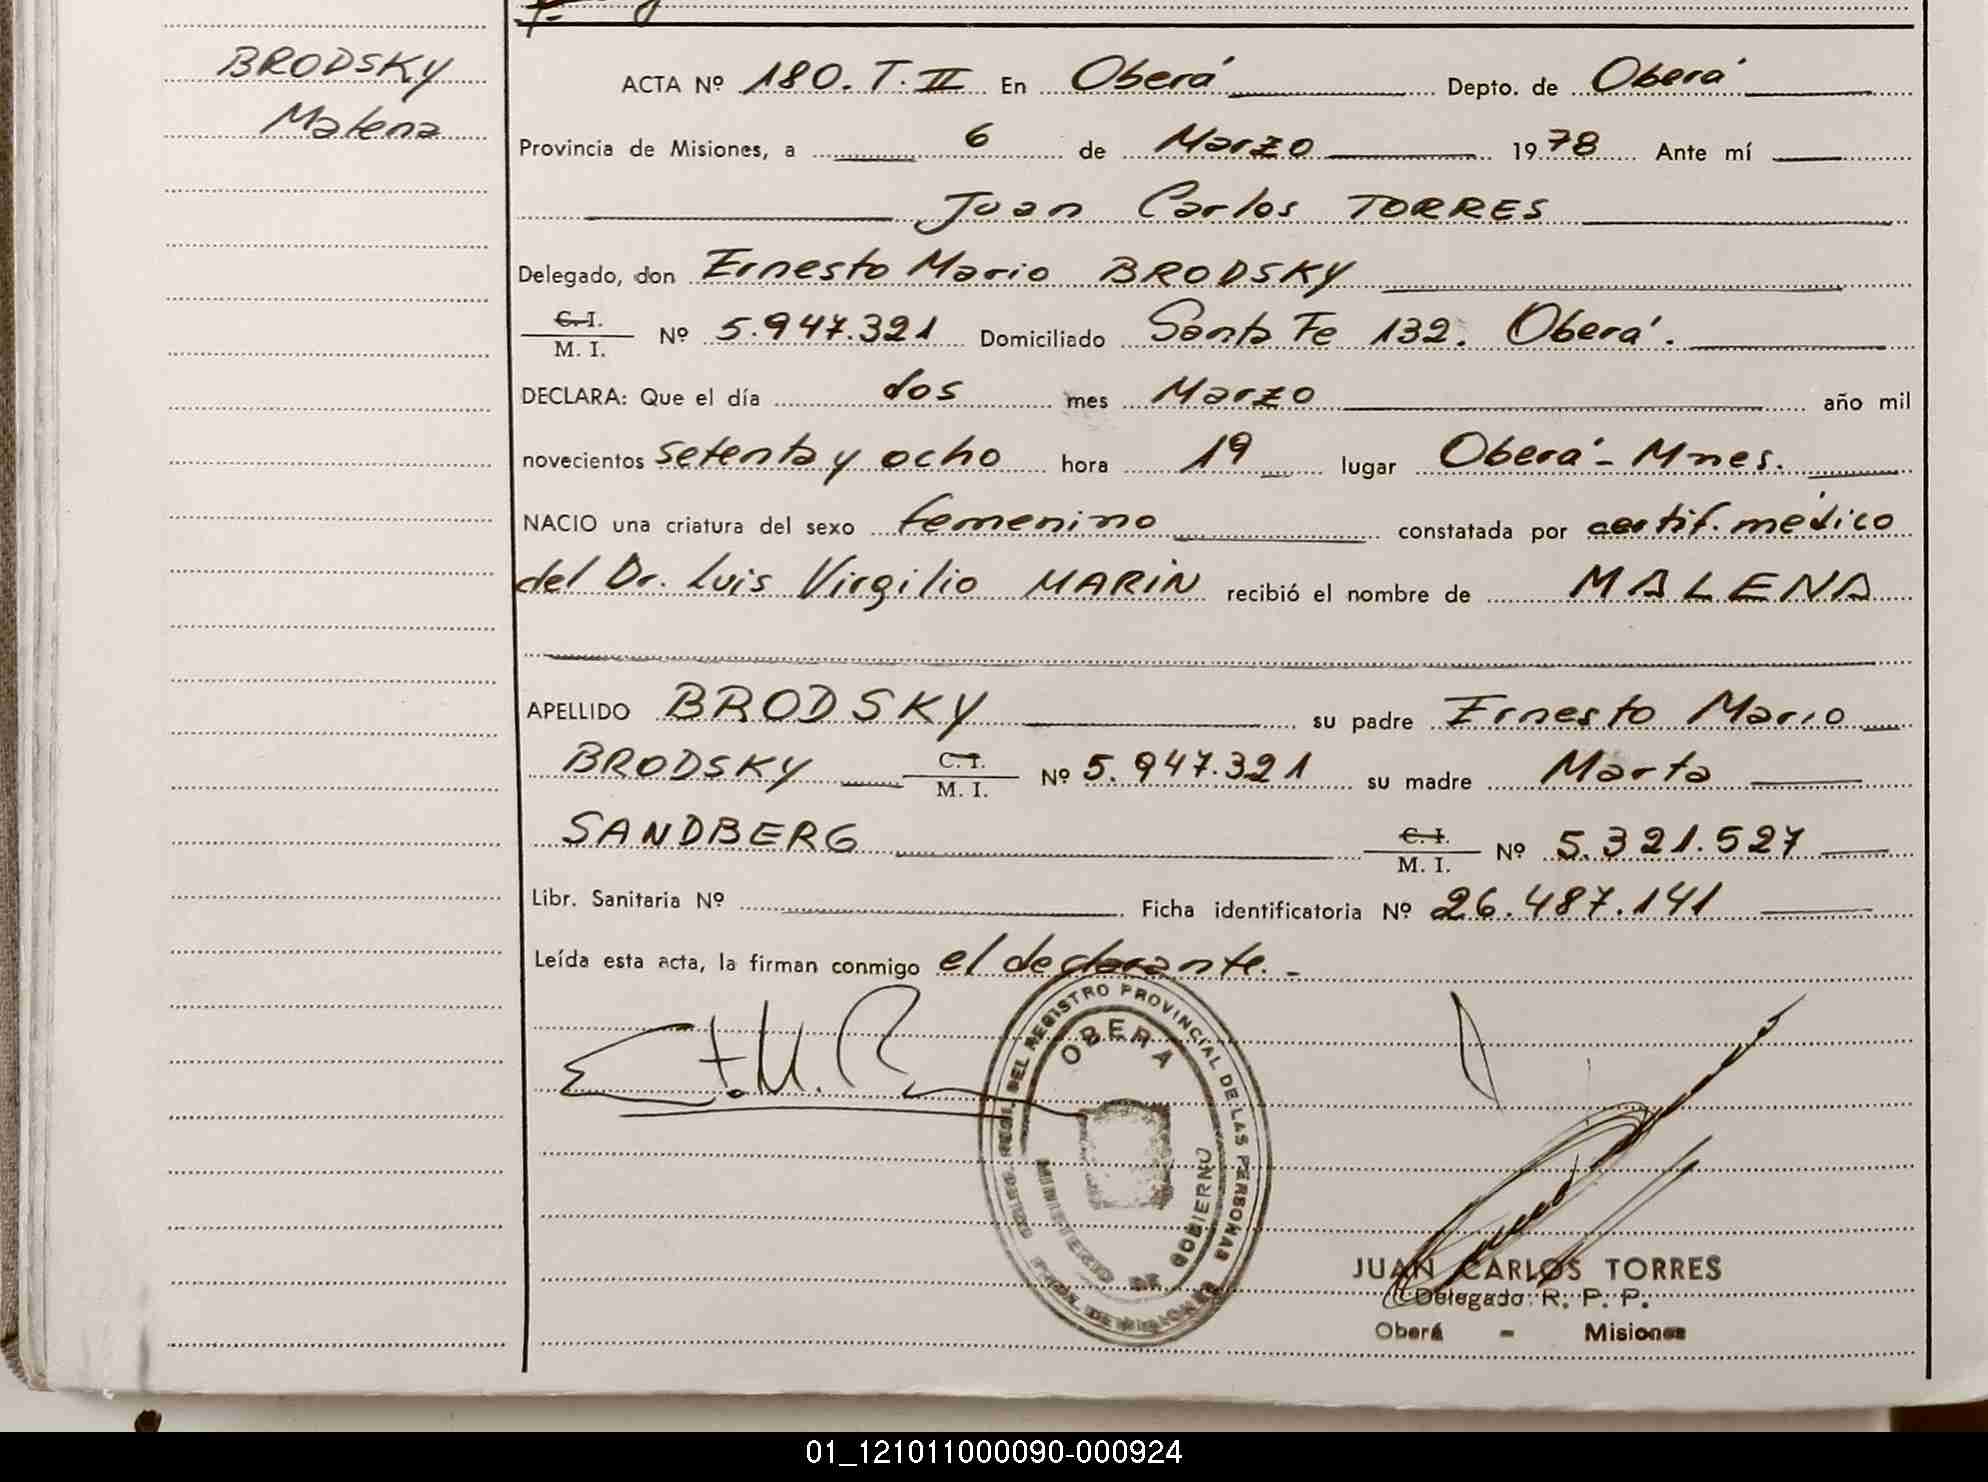 BRODSKY
Malena
ACTA Nº 180. T. II En Oberá Depto. de Oberá
Provincia de Misiones, a 6 de Marzo 1978 Ante mí
Juan Carlos TORRES
Delegado, don Ernesto Mario BRODSKY
C. I.
M. I. Nº 5.947.321 Domiciliado Santa Fe 132. Oberá.
DECLARA: Que el día dos mes Marzo año mil
novecientos setenta y ocho hora 19 lugar Oberá - Mnes.
NACIO una criatura del sexo femenino constatada por certif. médico
del Dr. Luis Virgilio MARIN recibió el nombre de MALENA
APELLIDO BRODSKY su padre Ernesto Mario
BRODSKY C. I.
M. I. Nº 5.947.321 su madre Marta
SANDBERG C. I.
M. I. Nº 5.321.527
Libr. Sanitaria Nº Ficha identificatoria Nº 26.487.141
Leída esta acta, la firman conmigo el declarante. -
DEL REGISTRO PROVINCIAL DE LAS PERSONAS
OBERA
MINISTERIO DE GOBIERNO
JUAN CARLOS TORRES
Delegado R. P. P.
Oberá - Misiones
01_121011000090-000924